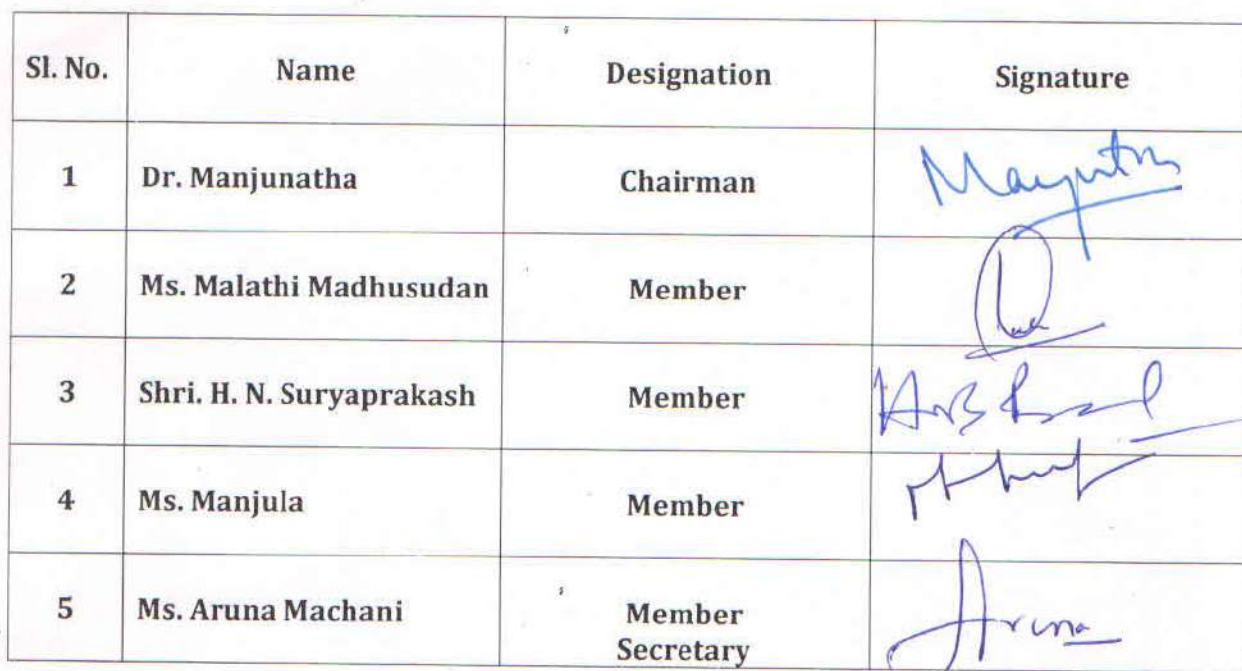 Sl. No. Name Designation Signature
1 Dr. Manjunatha Chairman
2 Ms. Malathi Madhusudan Member
3 Shri. H. N. Suryaprakash Member
4 Ms. Manjula Member
5 Ms. Aruna Machani Member Aruna
Secretary